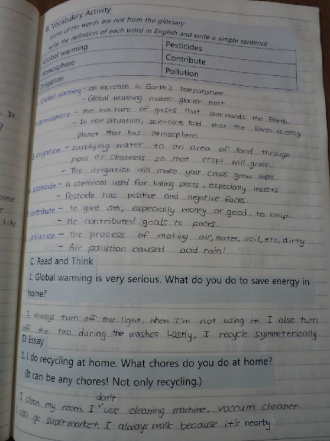 B. Vocabulary Activity
Some of the words are not from the glossary.
Write the definition of each word in English and write a simple sentence
Global warming Pesticides
Atmosphere Contribute
Irrigation Pollution
Global warming - an increase in Earth's temperature
- Global warming makes glacier melt.
atmosphere - the mixture of gases that surrounds the Earth.
- In new situation, scientists told that the Earth is only
planet that has atmosphere.
irrigation - supplying water to an area of land through
pipes or channels so that crops will grow.
- The irrigation will make your crops grow well.
pesticide - a chemical used for killing pests, especially insects
- Pesticide has positive and negative faces.
contribute - to give sth, especially money or good, to help
- He contributed goods to poors.
pollution - The process of making air, water, soil, etc, dirty
- Air pollution caused acid rain!
C. Read and Think
1. Global warming is very serious. What do you do to save energy in
home?
I always turn off the light, when I'm not using it. I also turn
off the tap during the washes. Lastly, I recycle symmeterically.
D. Essay
1. I do recycling at home. What chores do you do at home?
(It can be any chores! Not only recycling.)
I clean my room. I don't use cleaning machine, vaccum cleaner.
I can go supermarket. I always walk because it's nearby